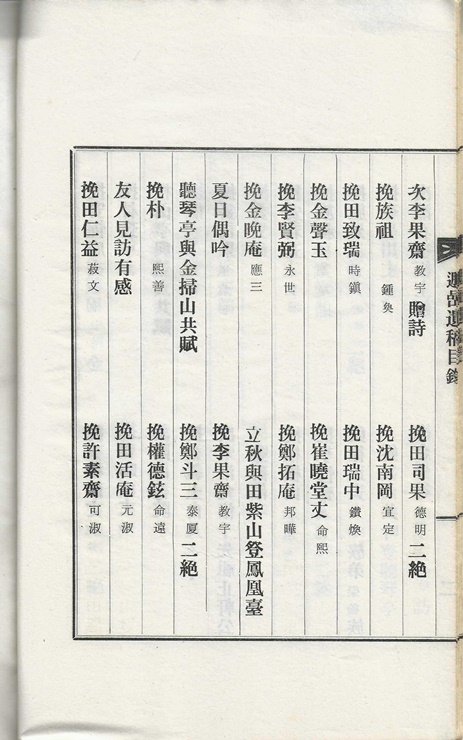 遺稿目錄
次李果齋 教宇 贈詩 挽田司果 德明 二絶
挽族祖 鍾奐 挽沈南岡 宜定
挽田致瑞 時鎭 挽田瑞中 鑽煥
挽金聲玉 挽崔曉堂丈 命熙
挽李賢弼 永世 挽鄭拓庵 邦曄
挽金晩庵 應三 立秋與田紫山登鳳凰臺
夏日偶吟 挽李果齋 教宇
聽琴亭與金掃山共賦 挽鄭斗三 泰厦 二絶
挽朴 熙善 挽權德鉉 命遠
友人見訪有感 挽田活庵 元淑
挽田仁益 文 挽許素齋 可淑